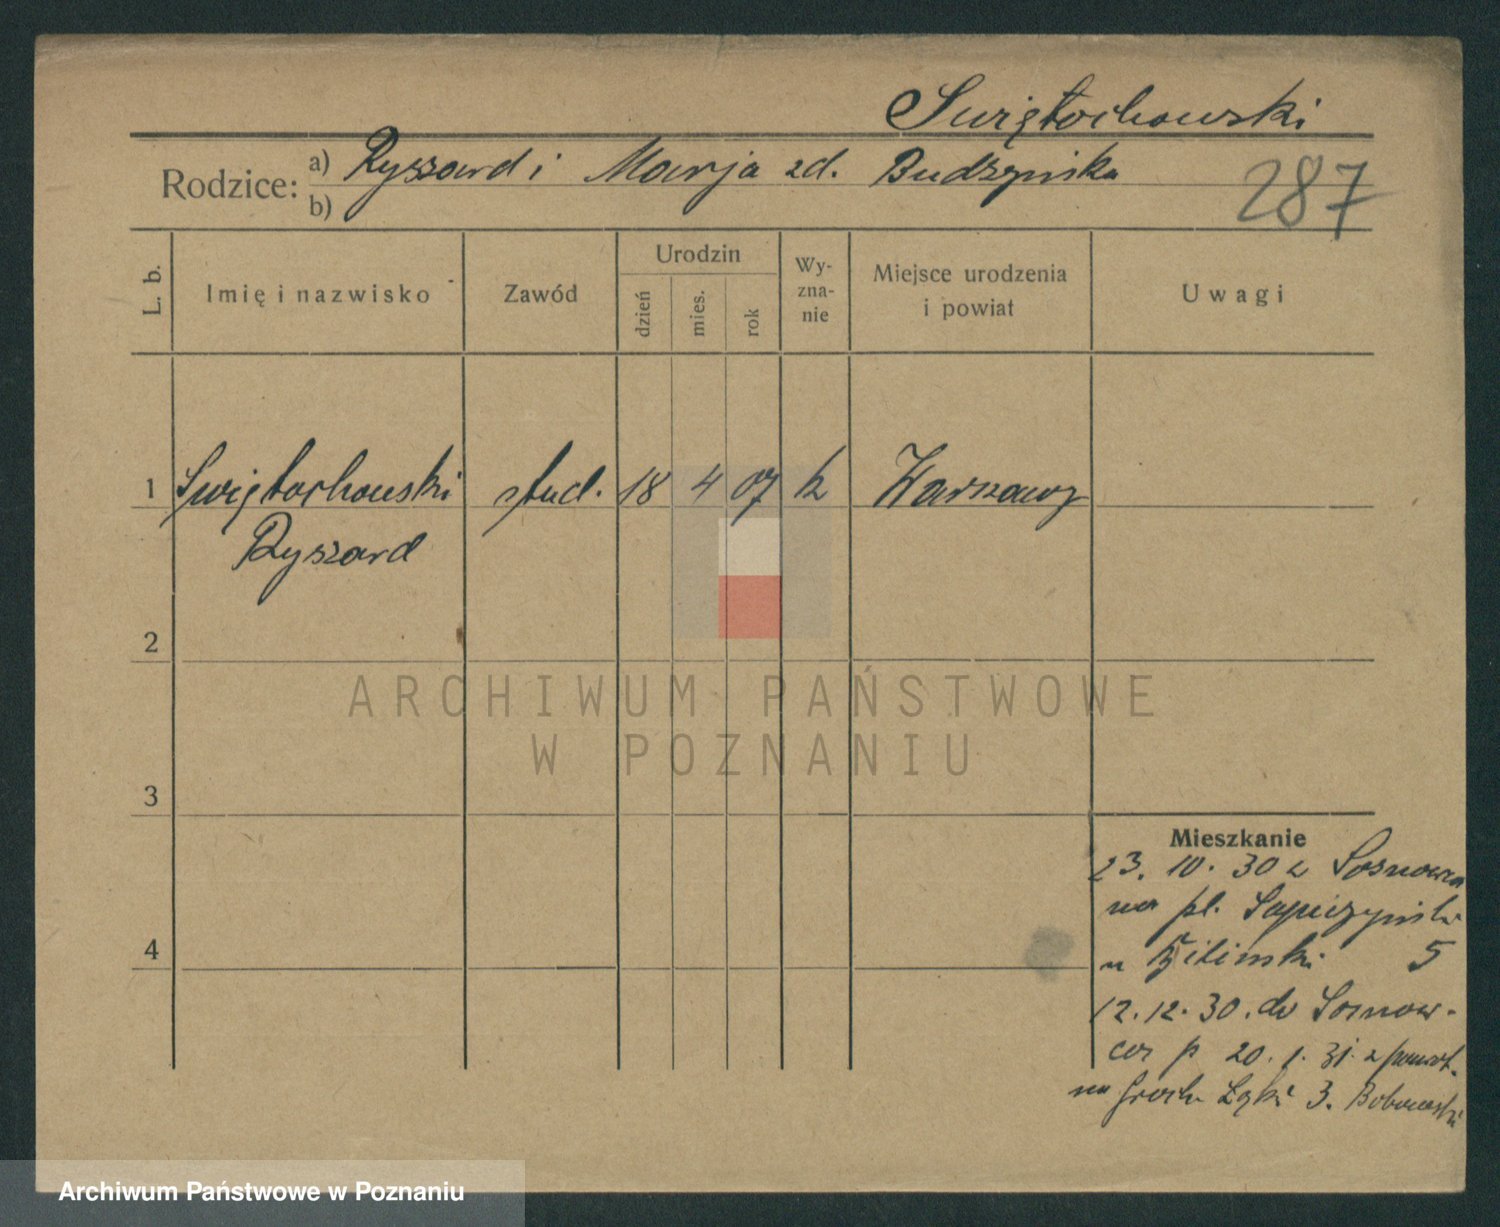 Świętochowski
Rodzice: a) Ryszard i Marja zd. Budzyńska
b)
287
L. b. Imię i nazwisko Zawód Urodzin dzień mies. rok Wy-zna-nie Miejsce urodzenia i powiat Uwagi
1 Świętochowski stud. 18 4 07 k Warszawa
Ryszard
2
ARCHIWUM PAŃSTWOWE
W POZNANIU
3
Mieszkanie
23. 10. 30 z Sosnowca
na pl. Sapieżyński
4
u 5
12. 12. 30. do Sosnow-
ca p 20. 1. 31. z powrot.
na Groch. Łąki 3. Bobowski
Archiwum Państwowe w Poznaniu